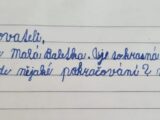 ovateli,
Malá Baletka. Vše sokrasná
de nějaké pokračování? M